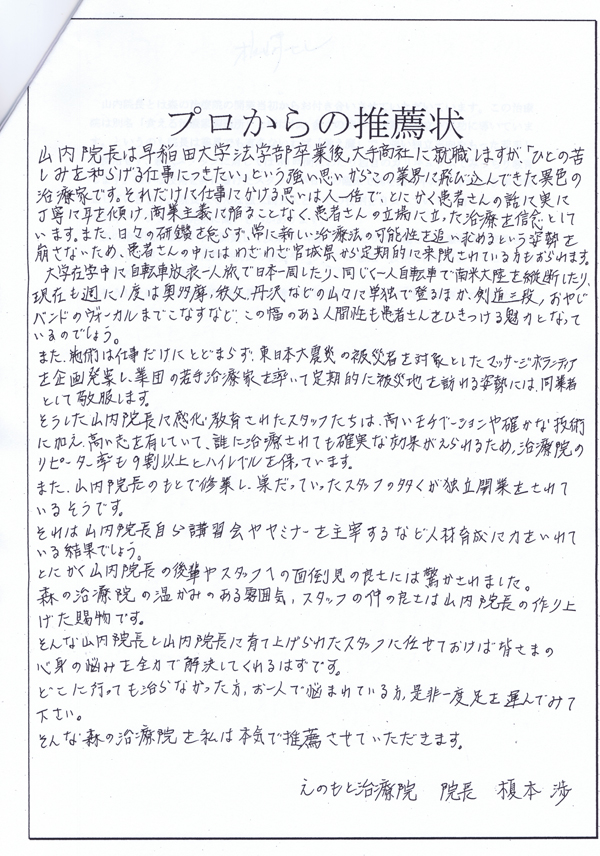 プロからの推薦状
山内院長は早稲田大学法学部卒業後、大手商社に就職しますが、「ひとの苦
しみを和らげる仕事につきたい」という強い思いからこの業界に飛び込んできた異色の
治療家です。それだけに仕事にかける思いは人一倍で、とにかく患者さんの話に実に
丁寧に耳を傾け、商業主義に陥ることなく、患者さんの立場に立った治療を信念として
います。また、日々の研鑽を怠らず、常に新しい治療法の可能性を追い求めるという姿勢を
崩さないため、患者さんの中にはわざわざ宮城県から定期的に来院されている方もおられます。
大学在学中に自転車放浪一人旅で日本一周したり、同じく一人自転車で南米大陸を縦断したり、
現在も週に1度は奥多摩、秩父、丹沢などの山々に単独で登るほか、剣道三段、おやじ
バンドのヴォーカルまでこなすなど、この幅のある人間性も患者さんをひきつける魅力となって
いるのでしょう。
また、施術は仕事だけにとどまらず、東日本大震災の被災者を対象としたマッサージボランティア
を企画発案し、業団の若手治療家を率いて定期的に被災地を訪れる姿勢には、同業者
として敬服します。
そうした山内院長に感化・教育されたスタッフたちは、高いモチベーションや確かな技術
に加え、高い志を有していて、誰に治療されても確実な効果がえられるため、治療院の
リピーター率も9割以上とハイレベルを保っています。
また、山内院長のもとで修業し、巣だっていったスタッフの多くが独立開業をされて
いるそうです。
それは山内院長自ら講習会やセミナーを主宰するなど人材育成に力をいれて
いる結果でしょう。
とにかく山内院長の後輩やスタッフへの面倒見の良さには驚かされました。
森の治療院の温かみのある雰囲気、スタッフの仲の良さは山内院長の作り上
げた賜物です。
そんな山内院長と山内院長に育て上げられたスタッフに任せておけば皆さまの
心身の悩みを全力で解決してくれるはずです。
どこに行っても治らなかった方、お一人で悩まれている方、是非一度足を運んでみて
下さい。
そんな森の治療院を私は本気で推薦させていただきます。
えのもと治療院 院長 榎本 渉